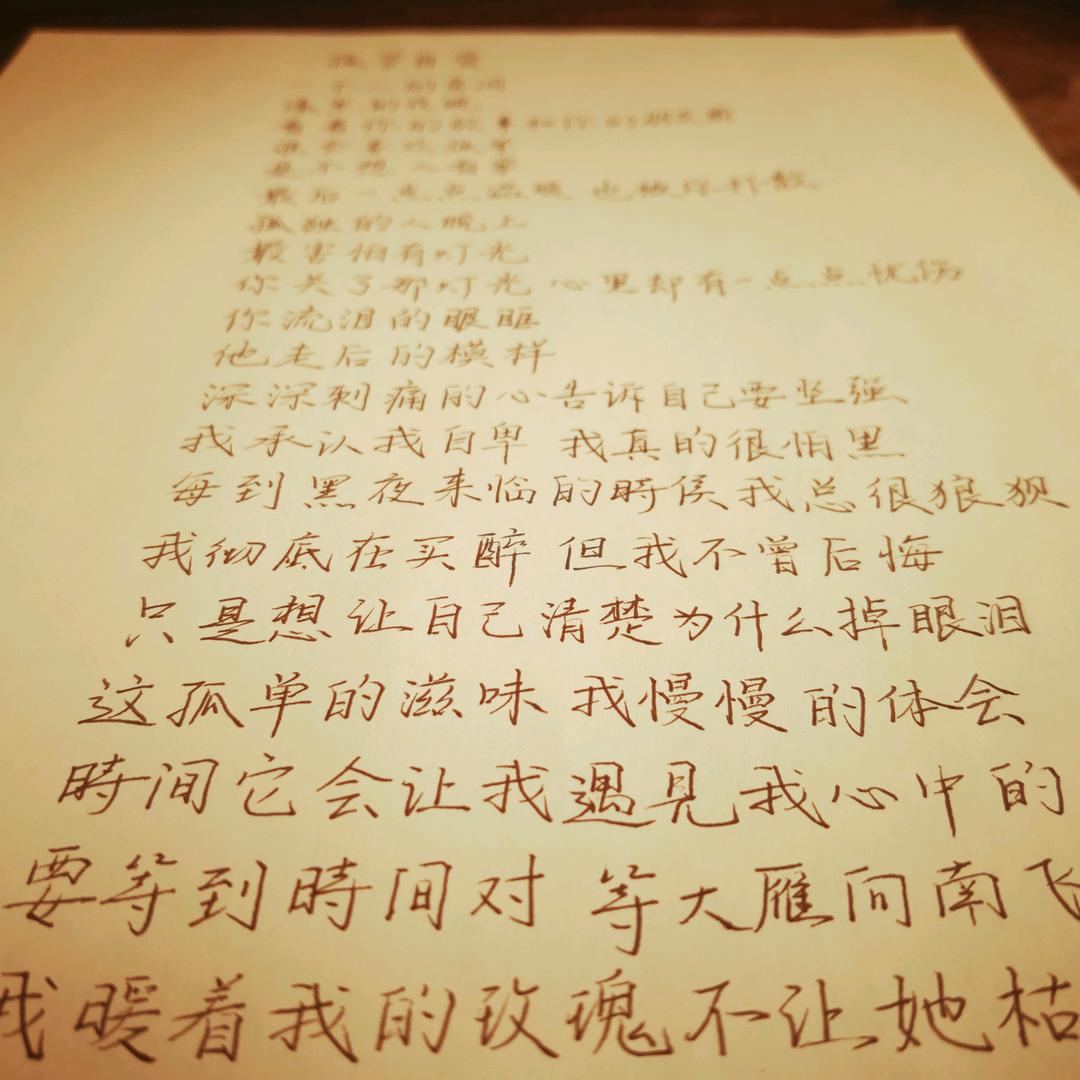 孤芳自赏
一个人的房间
看着你的故事和你的朋友圈
最后一点点温暖 也被你打散
孤独的人晚上
最害怕有灯光
你关了那灯光 心里却有一点点忧伤
你流泪的眼眶
他走后的模样
深深刺痛的心告诉自己要坚强
我承认我自卑 我真的很怕黑
每到黑夜来临的時候我总很狼狈
我彻底在买醉 但我不曾后悔
只是想让自己清楚为什么掉眼泪
这孤单的滋味 我慢慢的体会
時间它会让我遇见我心中的
要等到時间对 等大雁向南飞
我暖着我的玫瑰不让她枯